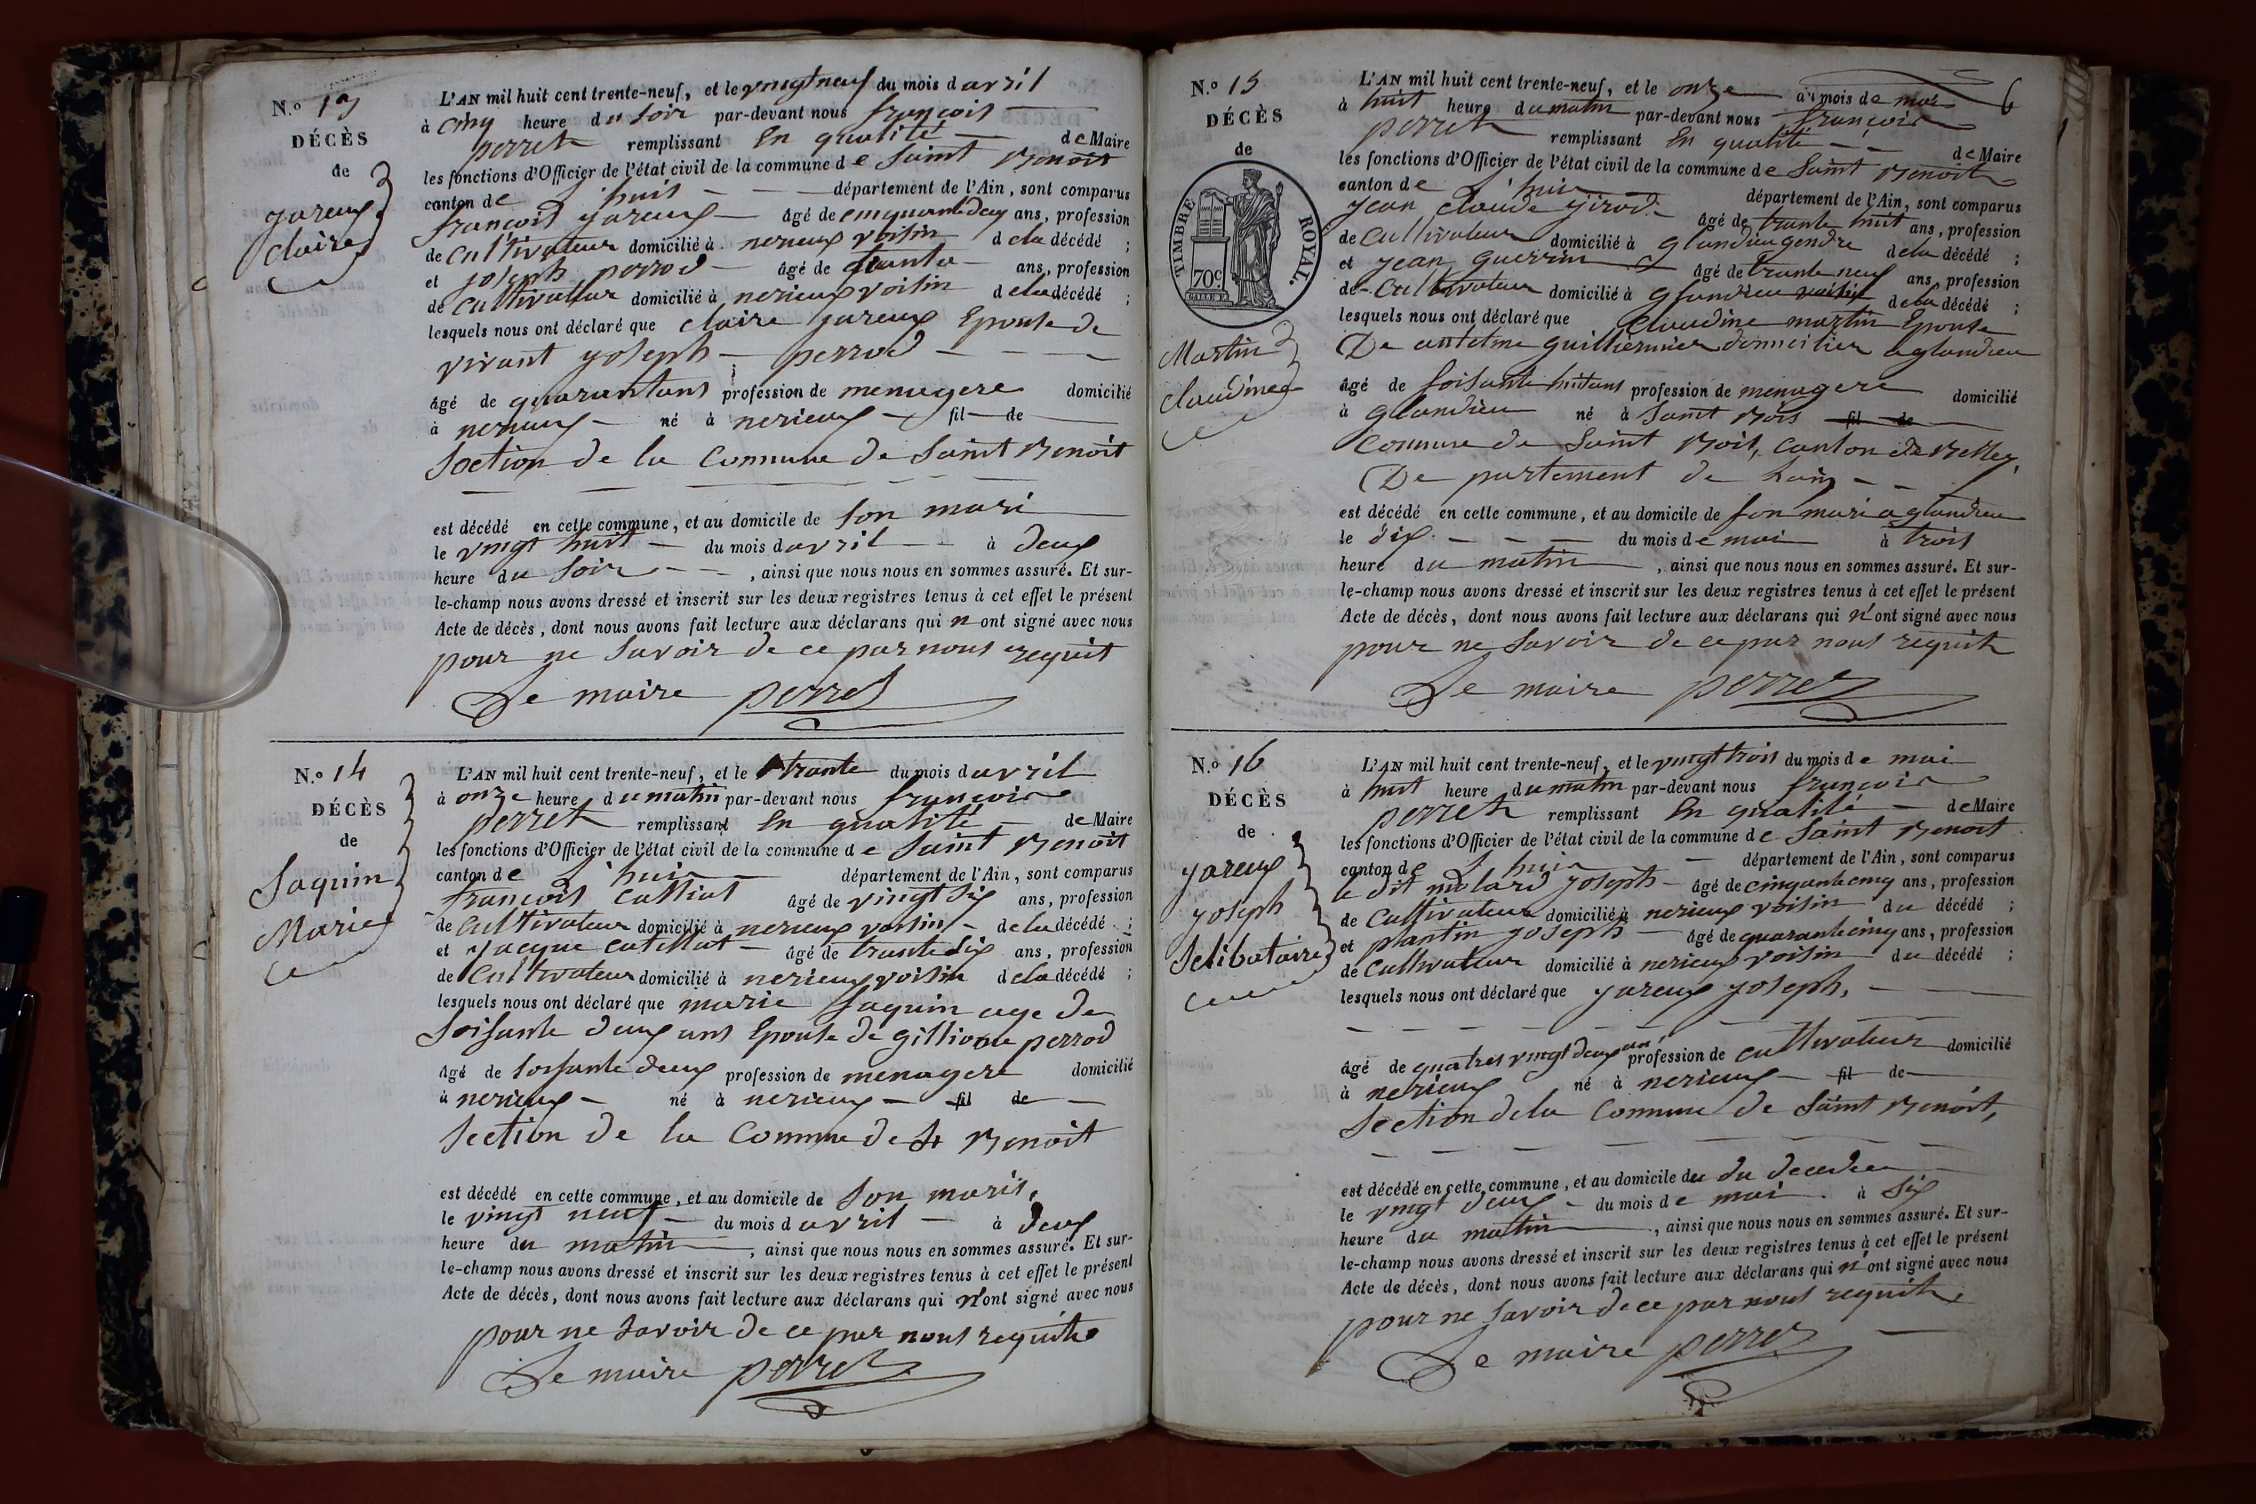 N.º 13
DÉCÈS
de
yareux
claire
L'AN mil huit cent trente-neuf, et le vingt neuf du mois d avril
à cinq heure du soir par-devant nous françois
perret remplissant En qualité de Maire
les fonctions d'Officier de l'état civil de la commune de Saint Benoit
canton de l'huis département de l'Ain, sont comparus
françois yareux âgé de cinquante deux ans, profession
de cultivateur domicilié à nerieux voisin de la décédé ;
et joseph perrod âgé de ans, profession
de cultivateur domicilié à nerieux voisin de la décédé ;
lesquels nous ont déclaré que claire yareux Epouse de
vivant yoseph perrod
âgé de quarantans profession de menagere domicilié
à nerieux né à nerieux fil de
Section de la Commune de Saint Benoit
est décédé en cette commune, et au domicile de son mari
le vingt huit du mois d avril à deux
heure du soir , ainsi que nous nous en sommes assuré. Et sur-
le-champ nous avons dressé et inscrit sur les deux registres tenus à cet effet le présent
Acte de décès, dont nous avons fait lecture aux déclarans qui n ont signé avec nous
pour ne savoir de ce par nous requit
Le maire perret
N.º 14
DÉCÈS
de
Saquin
Marie
L'AN mil huit cent trente-neuf, et le trante du mois d avril
à onze heure du matin par-devant nous françois
perret remplissant En qualité de Maire
les fonctions d'Officier de l'état civil de la commune de Saint Benoit
canton de l'huis département de l'Ain, sont comparus
françois âgé de vingt six ans, profession
de cultivateur domicilié à nerieux voisin de la décédé ;
et Jacque âgé de trante six ans, profession
de cultivateur domicilié à nerieux voisin de la décédé ;
lesquels nous ont déclaré que marie Saquin age de
soisante deux ans Epouse de perrod
âgé de soisante deux profession de menagere domicilié
à nerieux né à nerieux fil de
Section de la Commune de St Benoit
est décédé en cette commune, et au domicile de son maris,
le vingt neuf du mois d avril à deux
heure du matin , ainsi que nous nous en sommes assuré. Et sur-
le-champ nous avons dressé et inscrit sur les deux registres tenus à cet effet le présent
Acte de décès, dont nous avons fait lecture aux déclarans qui n'ont signé avec nous
pour ne savoir de ce par nous requit
Le maire perret
6
N.º 15
DÉCÈS
de
TIMBRE ROYAL.
70c
Martin
claudine
L'AN mil huit cent trente-neuf, et le onze du mois de
à huit heure du matin par-devant nous françois
perret remplissant En qualité de Maire
les fonctions d'Officier de l'état civil de la commune de Saint Benoit
canton de l'huis département de l'Ain, sont comparus
jean claude girod âgé de trante huit ans, profession
de cultivateur domicilié à glandieu gendre de la décédé ;
et jean guerrin âgé de trante neuf ans, profession
de cultivateur domicilié à glandieu voisin de la décédé ;
lesquels nous ont déclaré que claudine martin Epouse
De antelme guilliermier domicilier a glandieu
âgé de soisante huitans profession de menagere domicilié
à glandieu né à Saint Bois fil de
Commune de Saint Bois, canton de Belley,
De partement de
est décédé en cette commune, et au domicile de son mari a glandieu
le dix du mois de mai à trois
heure du matin , ainsi que nous nous en sommes assuré. Et sur-
le-champ nous avons dressé et inscrit sur les deux registres tenus à cet effet le présent
Acte de décès, dont nous avons fait lecture aux déclarans qui n'ont signé avec nous
pour ne savoir de ce par nous requit
Le maire perret
N.º 16
DÉCÈS
de
yareux
yoseph
Selibataire
L'AN mil huit cent trente-neuf, et le vingt trois du mois de mai
à huit heure du matin par-devant nous françois
perret remplissant En qualité de Maire
les fonctions d'Officier de l'état civil de la commune de Saint Benoit
canton de l'huis département de l'Ain, sont comparus
dit molard yoseph âgé de cinquante cinq ans, profession
de cultivateur domicilié à nerieux voisin du décédé ;
et plantin yoseph âgé de quarante cinq ans, profession
de cultivateur domicilié à nerieux voisin du décédé ;
lesquels nous ont déclaré que yareux yoseph,
âgé de quatres vingt deux ans profession de cultivateur domicilié
à nerieux né à nerieux fil de
Section de la Commune de Saint Benoit,
est décédé en cette commune, et au domicile de du
le vingt deux du mois de mai à six
heure du matin , ainsi que nous nous en sommes assuré. Et sur-
le-champ nous avons dressé et inscrit sur les deux registres tenus à cet effet le présent
Acte de décès, dont nous avons fait lecture aux déclarans qui n'ont signé avec nous
pour ne savoir de ce par nous requit
Le maire perret